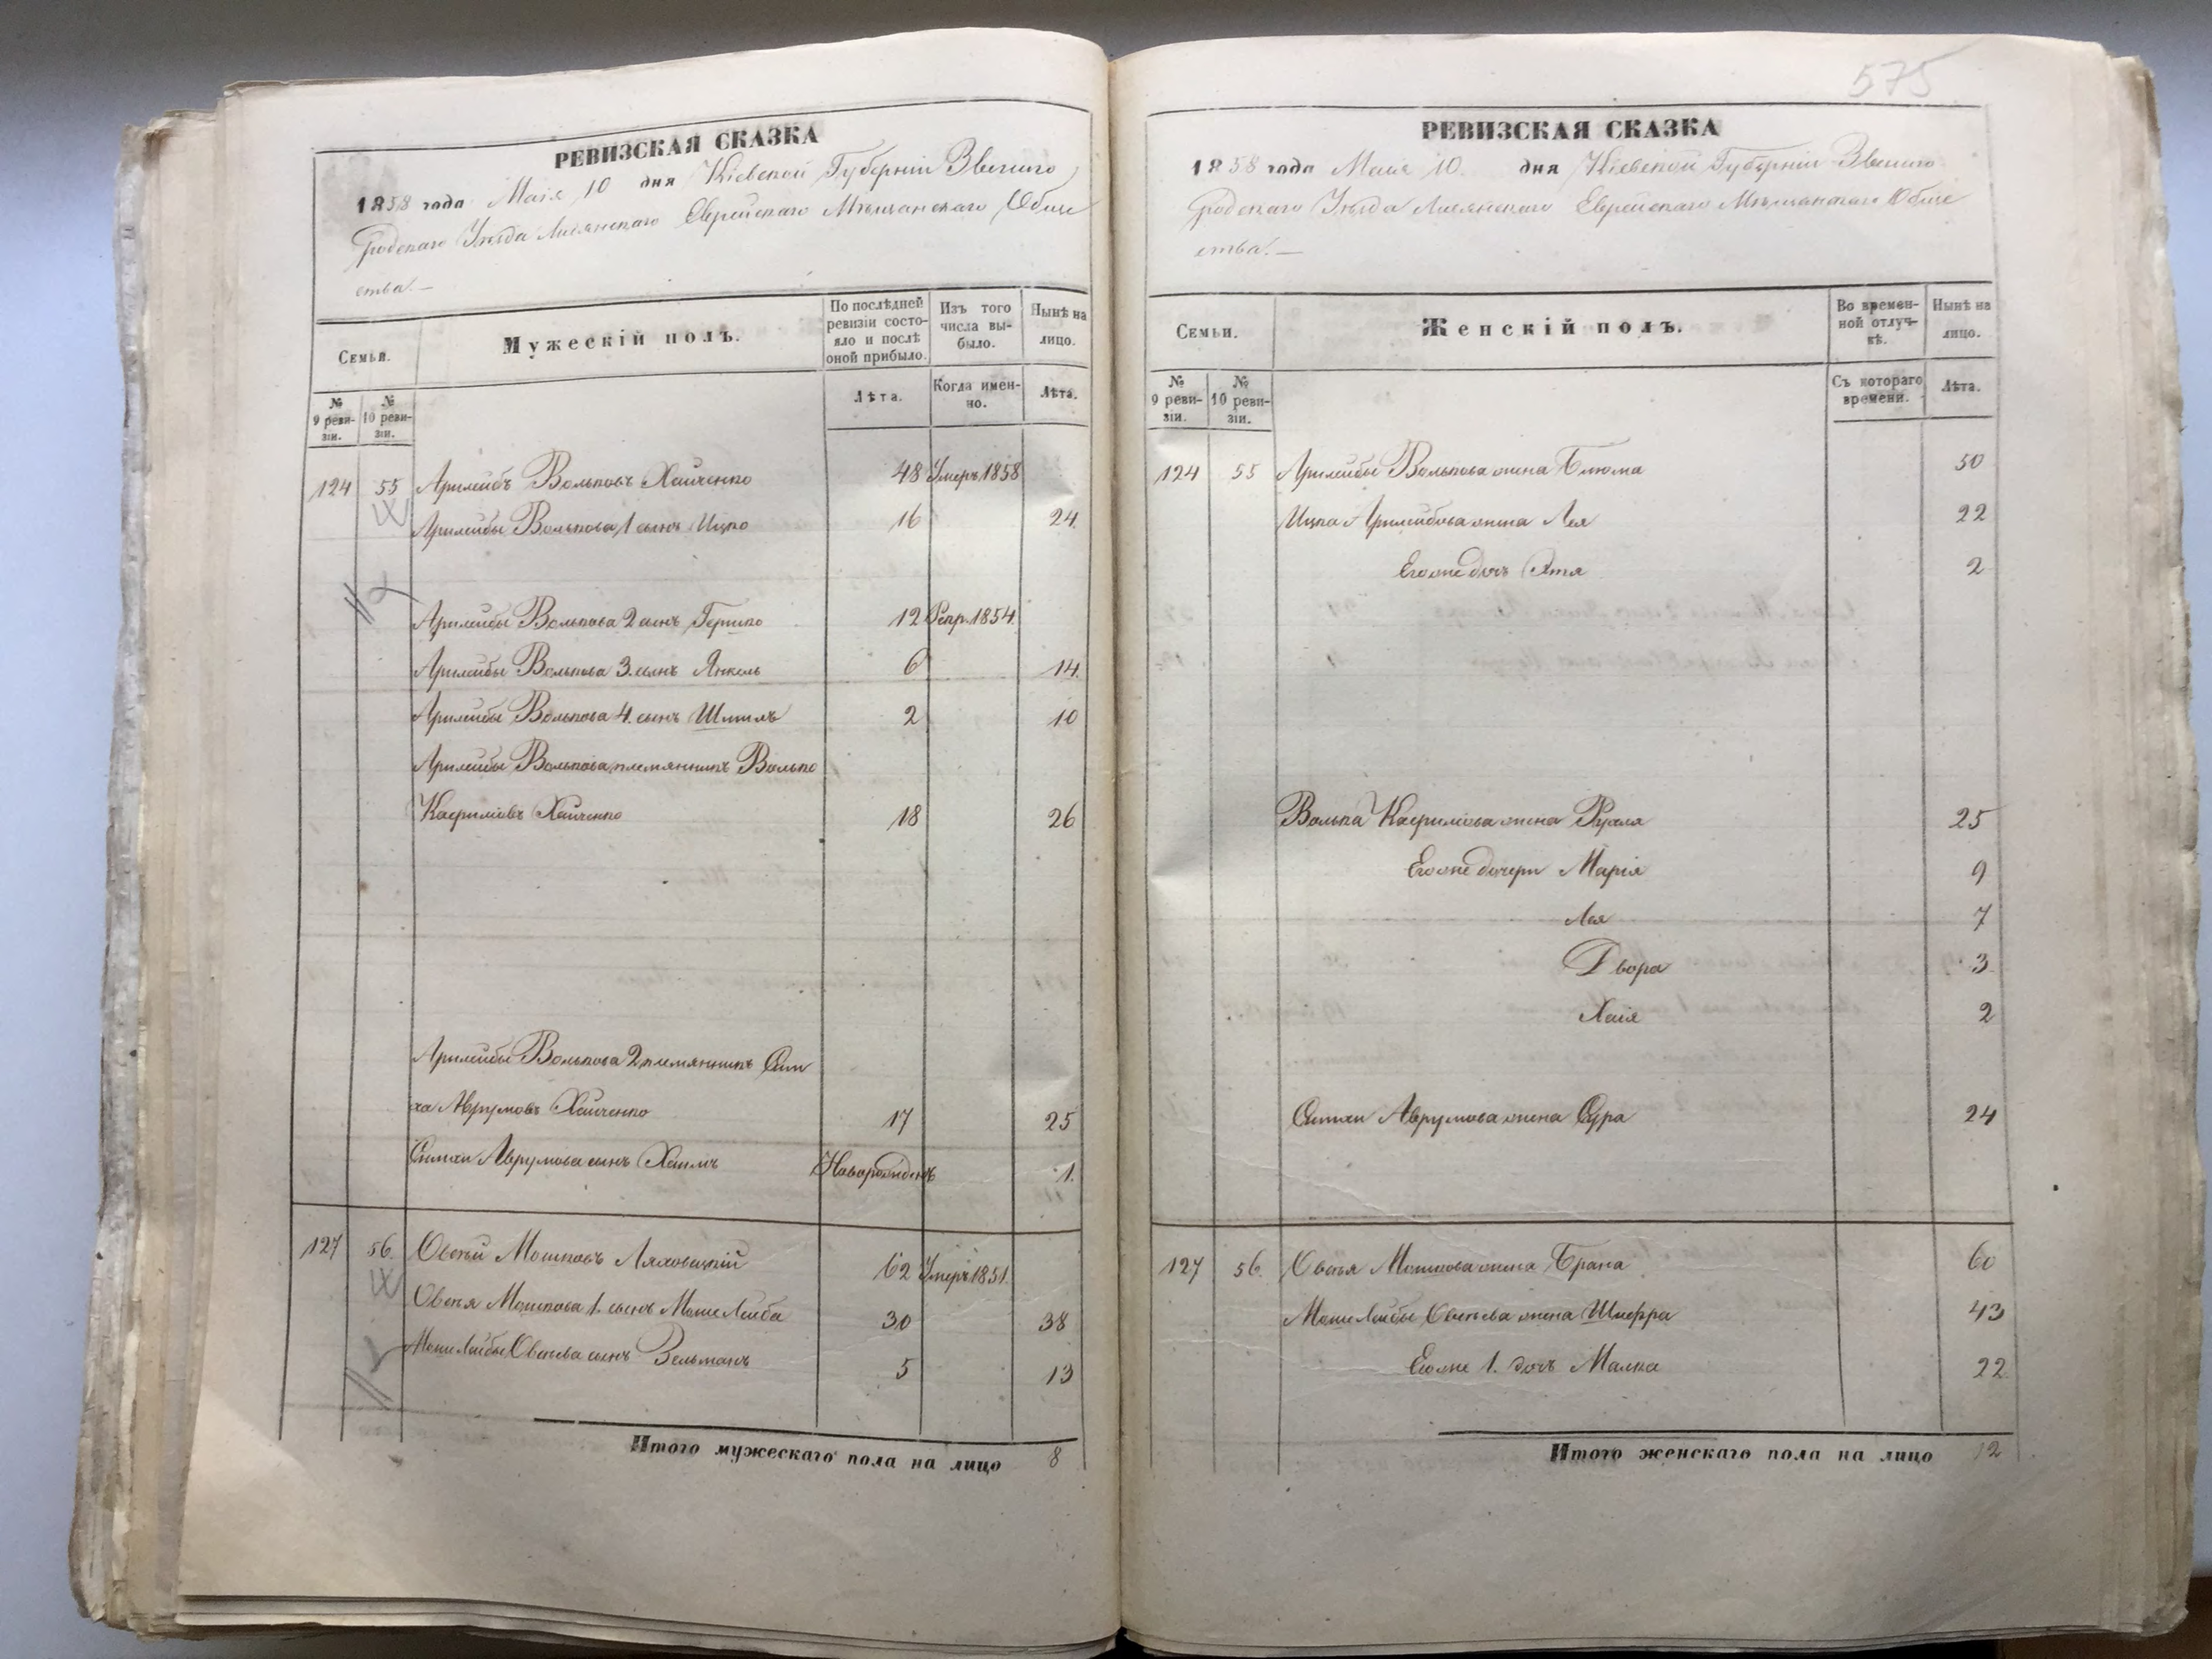 575
РЕВИЗСКАЯ СКАЗКА
1858 года Маія 10 дня Кіевской Губерніи Звениго
родскаго Уѣзда Лисянскаго Еврейскаго Мѣщанскаго Обще
ства.—
Семьи.
Мужескій полъ.
По послѣдней ревизіи состояло и послѣ оной прибыло.
Изъ того числа выбыло.
Нынѣ на лицо.
№ 9 ревизіи.
№ 10 ревизіи.
Лѣта.
Когда именно.
Лѣта.
124 55 Арилейбъ Вольковъ Хайченко 48 Умеръ 1858
Арилейбы Волькова 1 сынъ Ицко 16 24.
Арилейбы Волькова 2 сынъ Гершко 12 Рекр. 1854.
Арилейбы Волькова 3. сынъ Янкель 6 14.
Арилейбы Волькова 4. сынъ Шмиль 2 10
Арилейбы Волькова племянникъ Волько
Хайченко 18 26
Арилейбы Волькова 2 племянникъ Сим
ха Аврумовъ Хайченко 17 25
Симхи Аврумова сынъ Хаимъ Новорожденъ 1.
127 56. Овсей Мошковъ Ляховицкій 62 Умеръ 1851.
Овсея Мошкова 1. сынъ Мошe Лейба 30 38
Моше Лейбы Овсеева сынъ Зельманъ 5 13
Итого мужескаго пола на лицо 8
РЕВИЗСКАЯ СКАЗКА
1858 года Маія 10. дня Кіевской Губерніи Звениго
родскаго Уѣзда Лисянскаго Еврейскаго Мѣщанскаго Обще
ства.—
Семьи.
Женскій полъ.
Во временной отлучкѣ.
Нынѣ на лицо.
№ 9 ревизіи.
№ 10 ревизіи.
Съ котораго времени.
Лѣта.
124 55 Арилейбы Волькова жена Блюма 50
Ицка Арилейбова жена Лея 22
Его же дочь 2
Волька жена Рухля 25
Его же дочери Марія 9
Лея 7
Двора 3
Хаія 2
Симхи Аврумова жена Сура 24
127 56. Овсея Мошкова жена Брана 60
Моше Лейбы Овсеева жена Шифра 43
Его же 1. дочь Малка 22
Итого женскаго пола на лицо 12